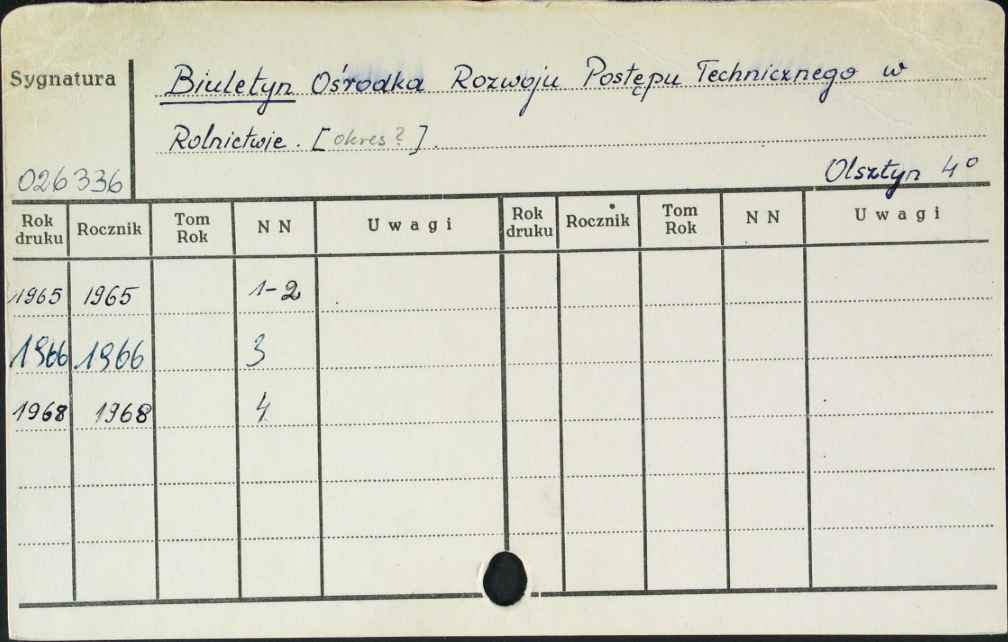 Sygnatura
Biuletyn Ośrodka Rozwoju Postępu Technicznego w
Rolnictwie. [okres?].
026336
Olsztyn 4°
Rok druku Rocznik Tom Rok N N Uwagi Rok druku Rocznik Tom Rok N N Uwagi
1965 1965 1-2
1966 1966 3
1968 1968 4